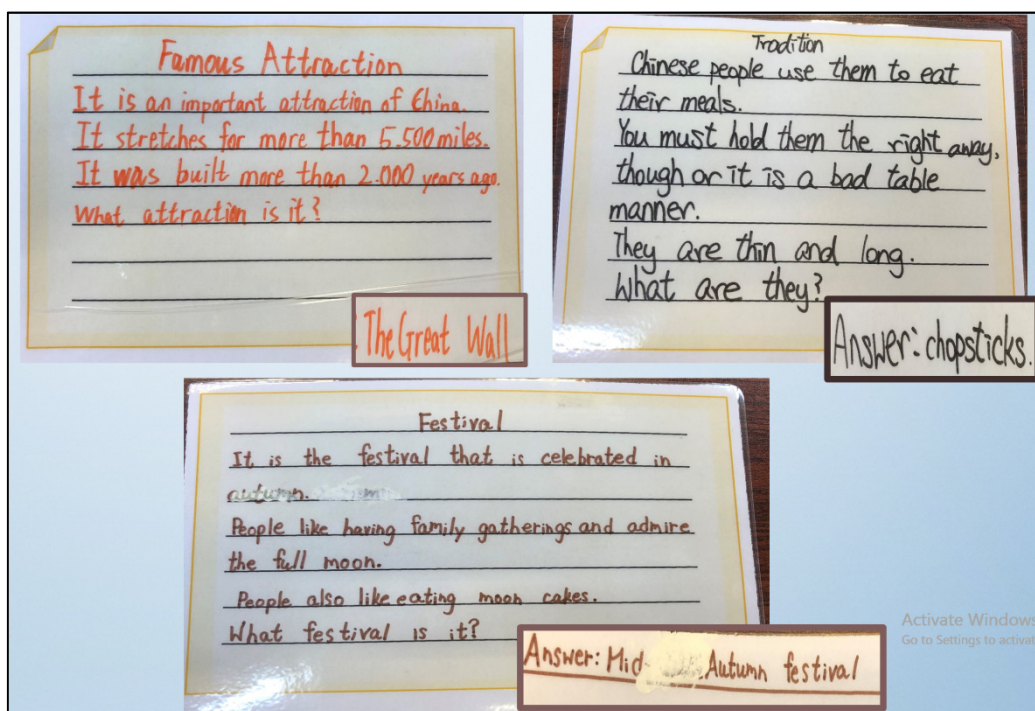 Famous Attraction
It is an important attraction of China.
It stretches for more than 5.500 miles.
It was built more than 2.000 years ago.
What attraction is it?
The Great Wall
Tradition
Chinese people use them to eat
their meals.
You must hold them the right away,
though or it is a bad table
manner.
They are thin and long.
What are they?
Answer: chopsticks.
Festival
It is the festival that is celebrated in
autumn.
People like having family gatherings and admire
the full moon.
People also like eating moon cakes.
What festival is it?
Answer: Mid-Autumn festival
Activate Windows
Go to Settings to activat